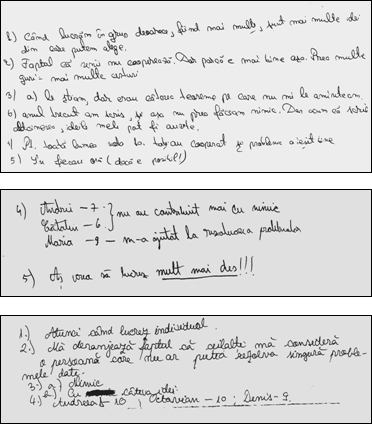 1) Când lucrăm în grup deoarece, fiind mai mulți, sunt mai multe idei
din care putem alege.
2) Faptul că unii nu cooperează. Dar parcă e mai bine așa. Prea multe
guri - mai multe
3) a) le știam, dar erau câteva teoreme pe care nu mi le aminteam.
b) anul trecut am scris, și așa nu prea făceam nimic. Dar acum că scriu
ideile mele pot fi auzite.
4) toată lumea au cooperat și problema a ieșit bine
5) (dacă e posibil!)
4) Andrei - 7
Cătălin - 6 nu au contribuit mai cu nimic
Maria - 9 - m-a ajutat la rezolvarea problemelor
5) Aș vrea să lucrez mult mai des!!!
1.) Atunci când lucrez individual.
2.) Mă deranjează faptul că ceilalți mă consideră
o persoană care nu ar putea rezolva singură proble-
mele date.
3.) a) Nimic
b) Cu câteva idei.
4.) Andreea - 10 ; Octavian - 10 ; Denis - 9